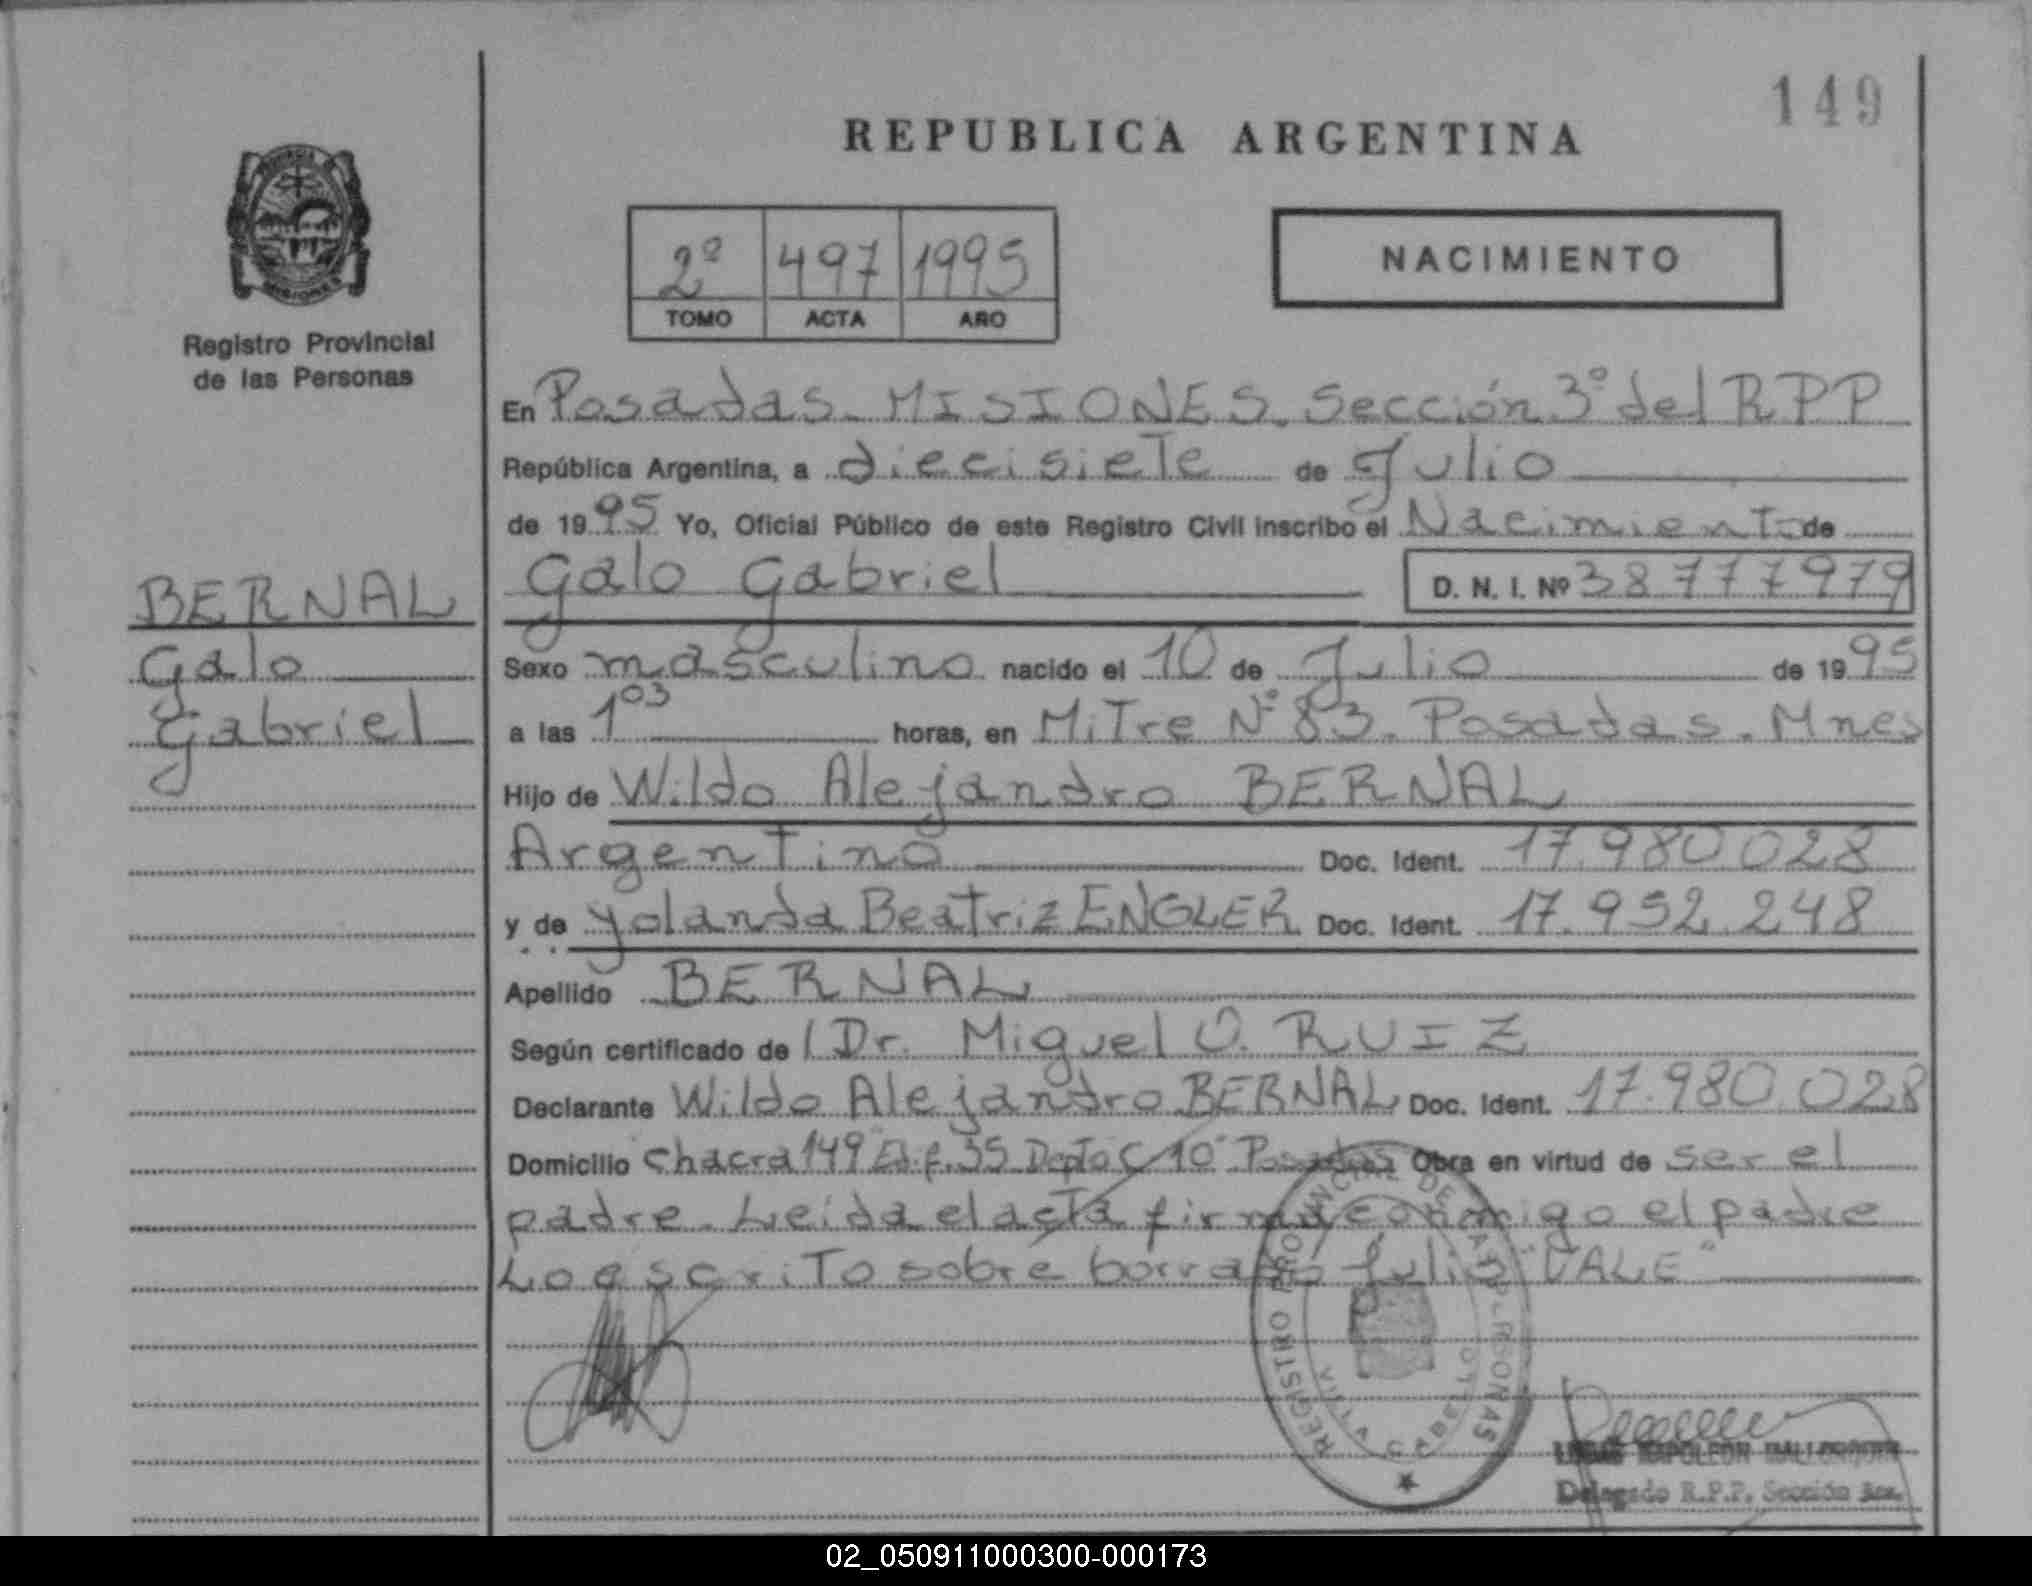 149
REPUBLICA ARGENTINA
2º 497 1995
TOMO ACTA AÑO
NACIMIENTO
Registro Provincial
de las Personas
BERNAL
Galo
Gabriel
En Posadas. MISIONES. Sección 3º del RPP
República Argentina, a diecisiete de Julio
de 1995 Yo, Oficial Público de este Registro Civil inscribo el Nacimiento de
Galo Gabriel D. N. I. Nº 38777979
Sexo masculino nacido el 10 de Julio de 1995
a las 1⁰³ horas, en Mitre Nº 83. Posadas. Mnes
Hijo de Wildo Alejandro BERNAL
Argentino Doc. Ident. 17.980.028
y de Yolanda Beatriz ENGLER Doc. Ident. 17.952.248
Apellido BERNAL
Según certificado de Dr. Miguel O. RUIZ
Declarante Wildo Alejandro BERNAL Doc. Ident. 17.980.028
Domicilio Chacra 149 Edif. 35 Depto C 10º Posadas Obra en virtud de ser el
padre. Leida el acta firma conmigo el padre
Lo escrito sobre borrado Julio "VALE"
REGISTRO PROVINCIAL DE LAS PERSONAS
Delegado R.P.P. Sección 3ra.
02_050911000300-000173